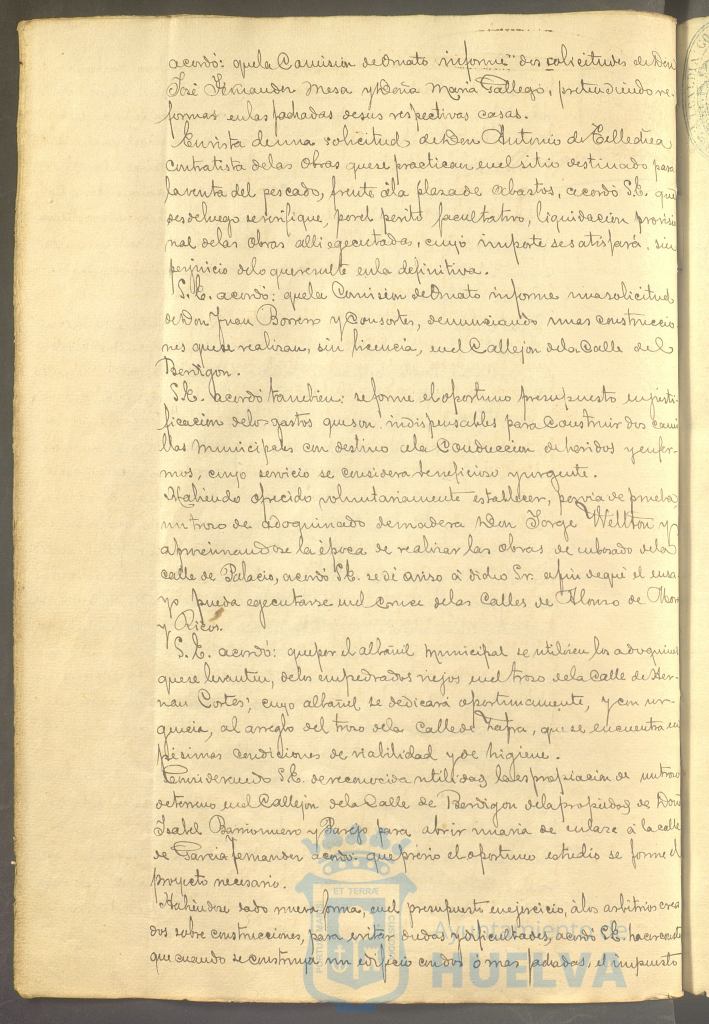 acordó: que la Comision de Ornato informe dos solicitudes de Don
José Fernandez Mesa y Doña Maria Gallego, pretendiendo re-
formas en las fachadas de sus respectivas casas.
En vista de una solicitud de Don Antonio de
contratista de las obras que se practican en el sitio destinado para
la venta del pescado, frente á la plaza de Abastos, acordó S.E. que
desde luego se verifique, por el perito facultativo, liquidacion provisio
nal de las obras alli egecutadas, cuyo importe se satisfará, sin
perjuicio de lo que resulte en la definitiva.
S.E. acordó: que la Comision de Ornato informe una solicitud
de Don Juan Borrero y Consortes, denunciando unas construccio
nes que se realizan, sin licencia, en el Callejon de la Calle del
Berdigon.
S.E. acordó tambien: se forme el oportuno presupuesto en justi-
ficacion de los gastos que son indispensables para construir dos cami
llas municipales con destino á la conduccion de heridos y enfer-
mos, cuyo servicio se considera beneficioso y urgente.
Habiendo ofrecido voluntariamente establecer, por via de prueba,
un trozo de adoquinado de madera Don Jorge Wellton y
aproximandose la época de realizar las obras de la
calle de Palacio, acordó S.E. se dé aviso á dicho Sr. á fin de que el ensa-
yo pueda egecutarse en el cruce de las Calles de Alonso de Mora
y Ricos.
S.E. acordó: que por el albañil municipal se utilicen los adoquines
que se levanten, de los empedrados viejos en el trozo de la Calle de Her-
nan Cortés; cuyo albañil se dedicará oportunamente, y con ur-
gencia, al arreglo del trozo de la calle de Zafra, que se encuentra en
pésimas condiciones de viabilidad y de higiene.
Considerando S.E. de reconocida utilidad la expropiacion de un trozo
de terreno en el Callejon de la Calle de Berdigon de la propiedad de Doña
Isabel Barrionuevo y Parejo para abrir una via de enlace á la calle
de Garcia Fernandez acordó: que prévio el oportuno estudio se forme el
proyecto necesario.
Habiendose dado nueva forma, en el presupuesto en ejercicio, á los arbitrios crea
dos sobre construcciones, para evitar dudas y dificultades, acordó S.E.
que cuando se construya un edificio con dos ó mas fachadas, el impuesto
Ayuntamiento de
HUELVA